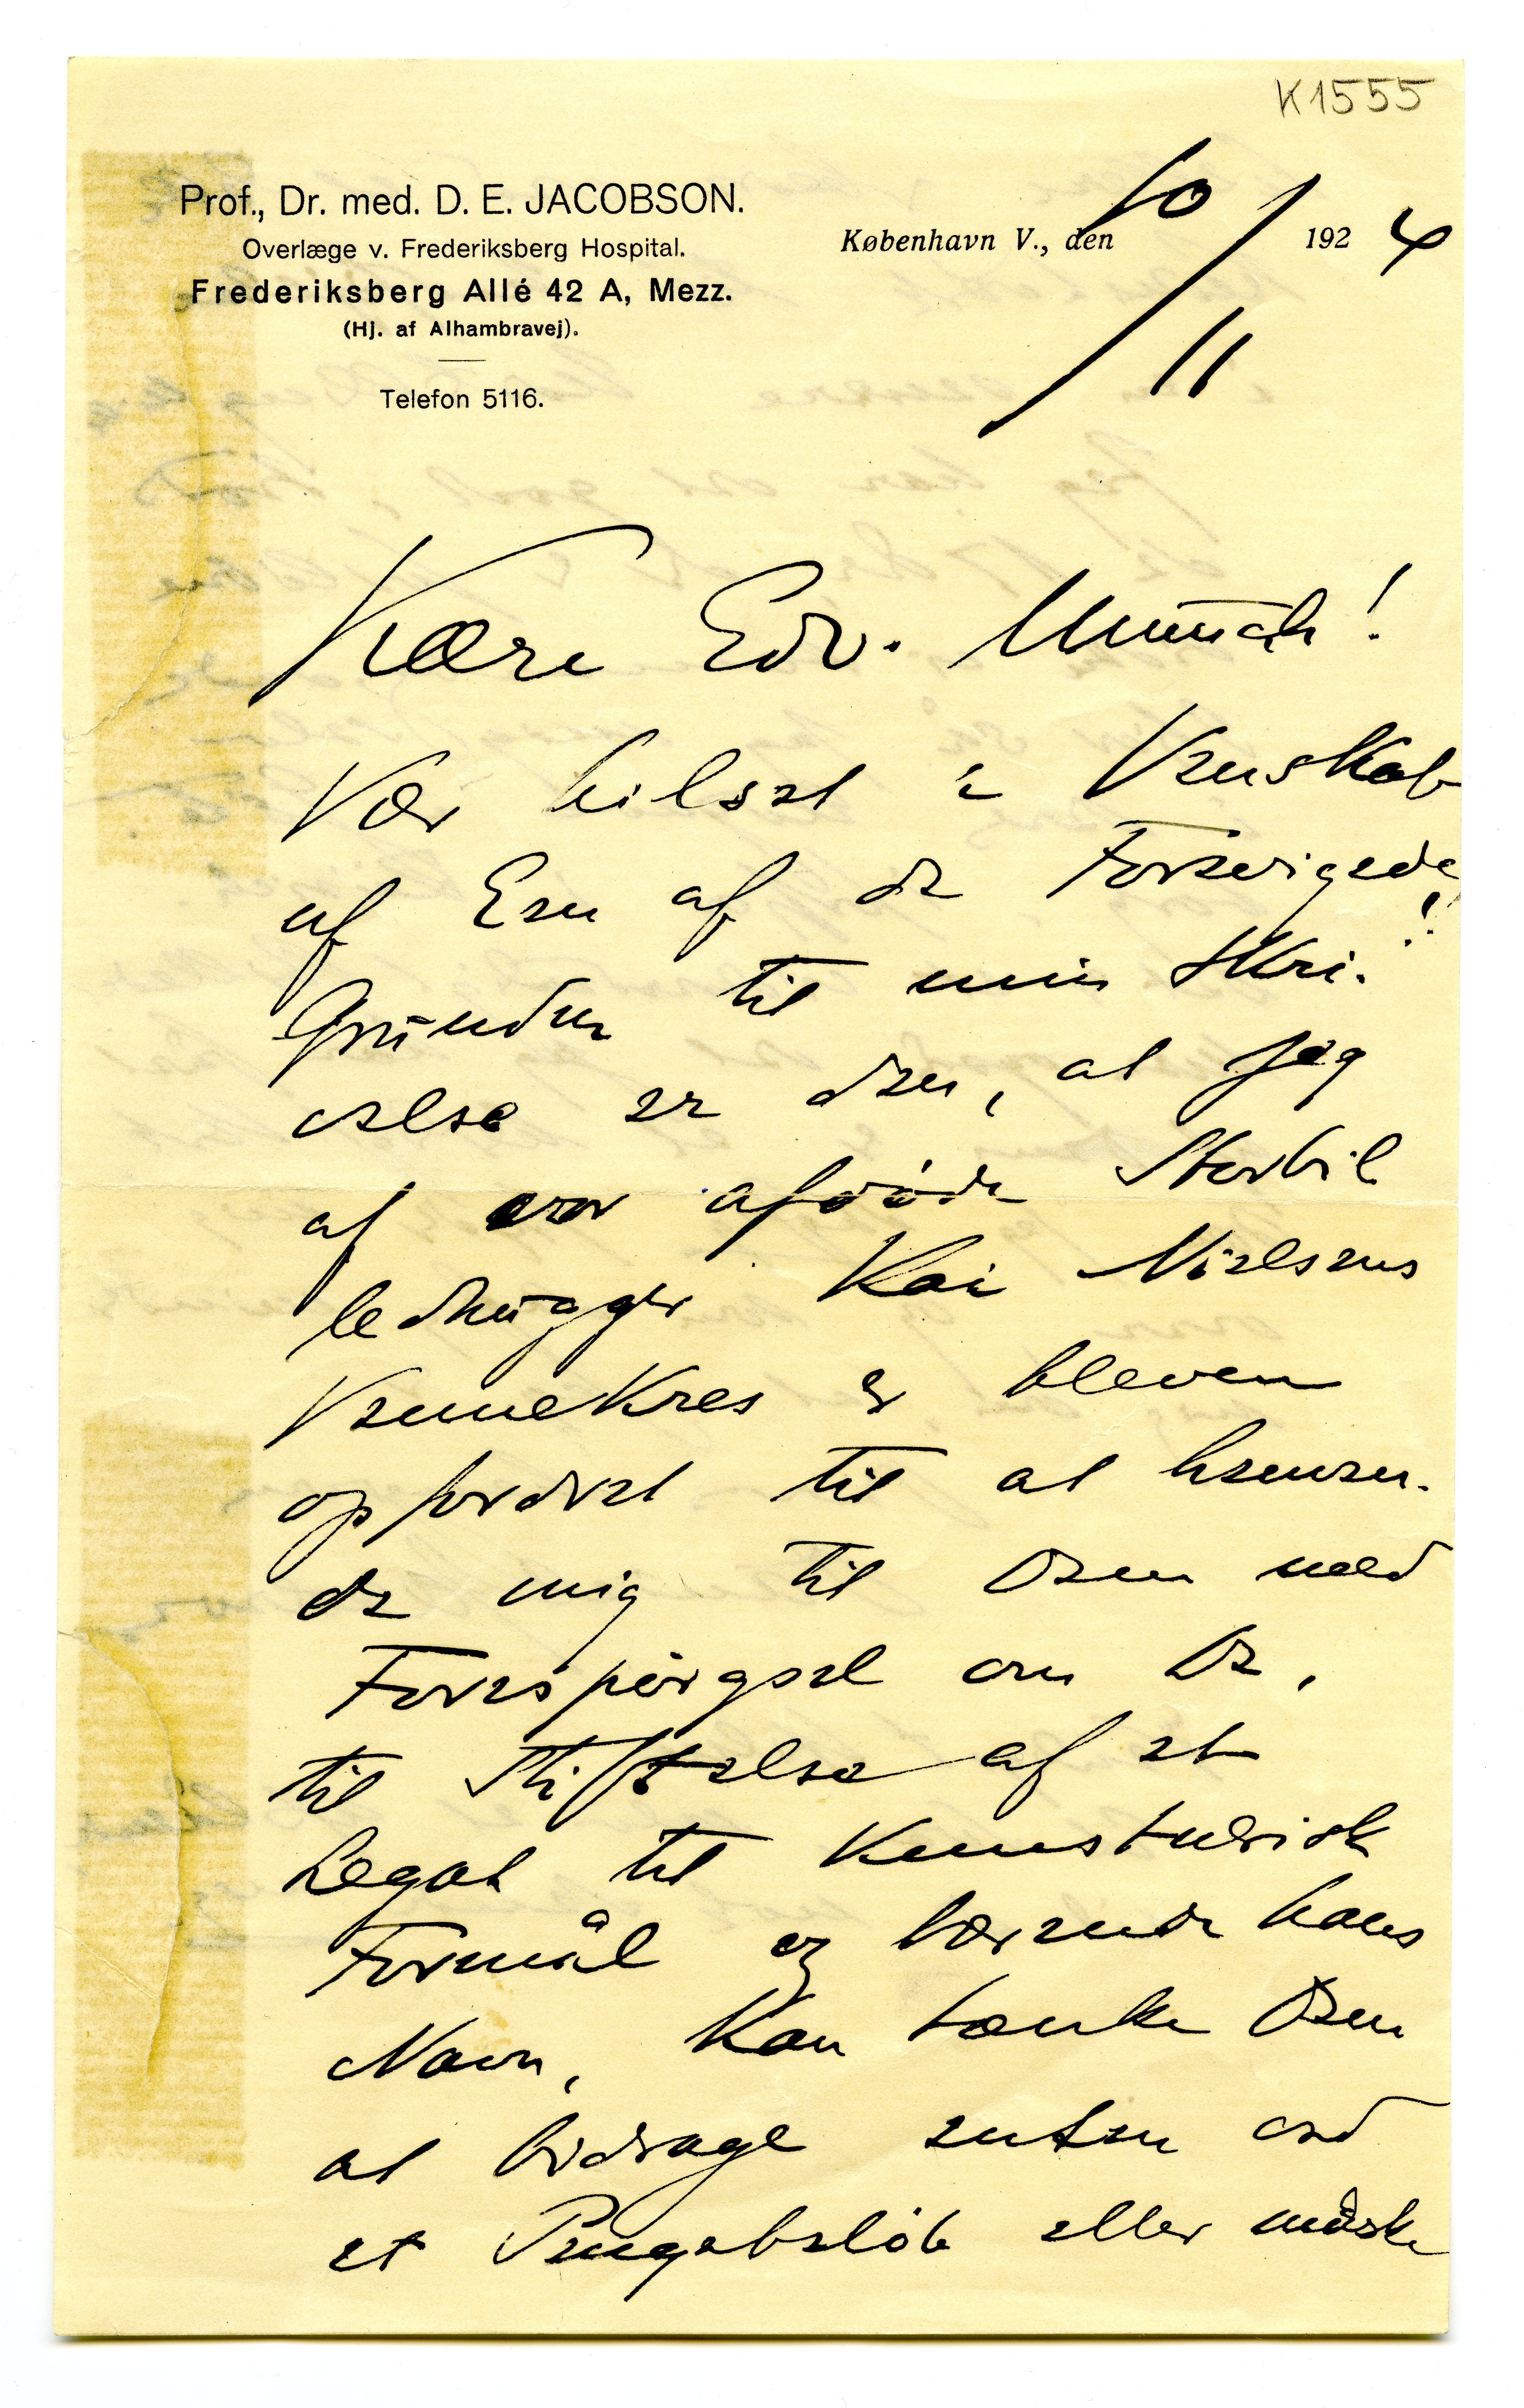 K1555
Prof., Dr. med. D. E. JACOBSON.
Overlæge v. Frederiksberg Hospital.
Frederiksberg Allé 42 A, Mezz.
(Hj. af Alhambravej).
Telefon 5116.
København V., den 10/11 1924
Kære Edv. Munch!
Vær hilset i Venskab
af Een af de Forevigede!
Grunden til min Skri-
velse er den, at jeg
af vor afdøde Storbil
ledhugger Kai Nielsens
Vennekres er bleven
opfordret til at henven-
de mig til Dem med
Forespørgsel om De,
til Stiftelse af et
Legat til Kunstnerisk
Formål og bærende hans
Navn, kan tænke Dem
at bidrage enten med
et Pengebeløb eller måske